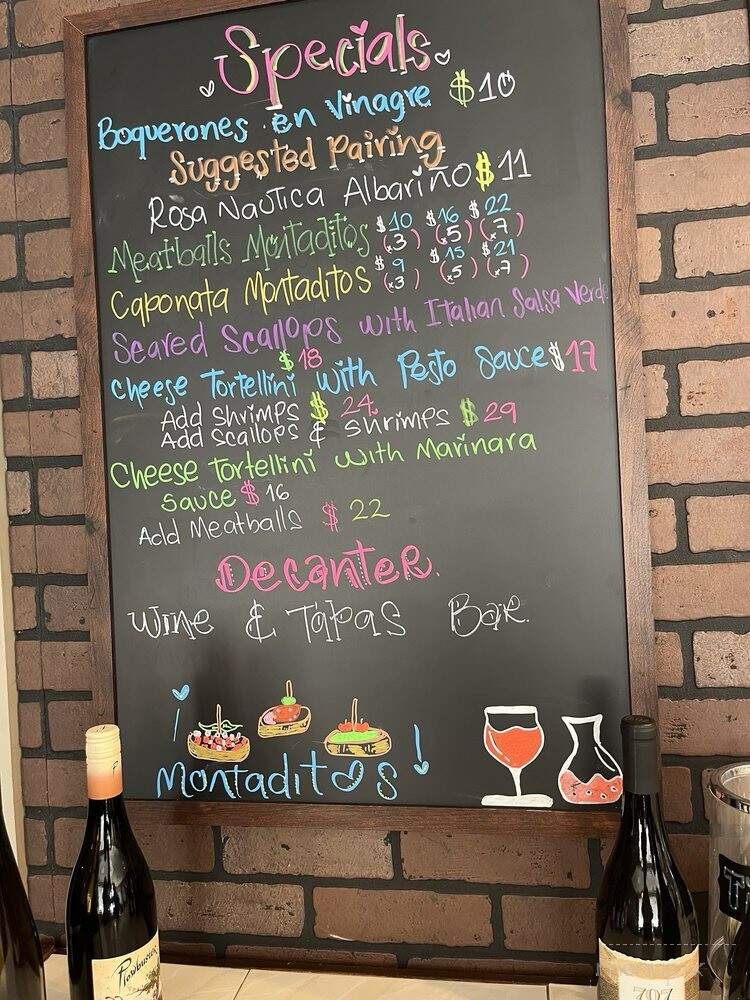 Specials
Boquerones en Vinagre $10
Suggested Pairing
Rosa Nautica Albariño $11
Meatballs Montaditos $10 (x3) $16 (x5) $22 (x7)
Caponata Montaditos $9 (x3) $15 (x5) $21 (x7)
Seared Scallops with Italian Salsa Verde
$18
Cheese Tortellini with Pesto Sauce $17
Add shrimps $24
Add scallops & shrimps $29
Cheese Tortellini with Marinara
Sauce $16
Add Meatballs $22
Decanter.
Wine & Tapas Bar.
¡Montaditos!
Plowbuster